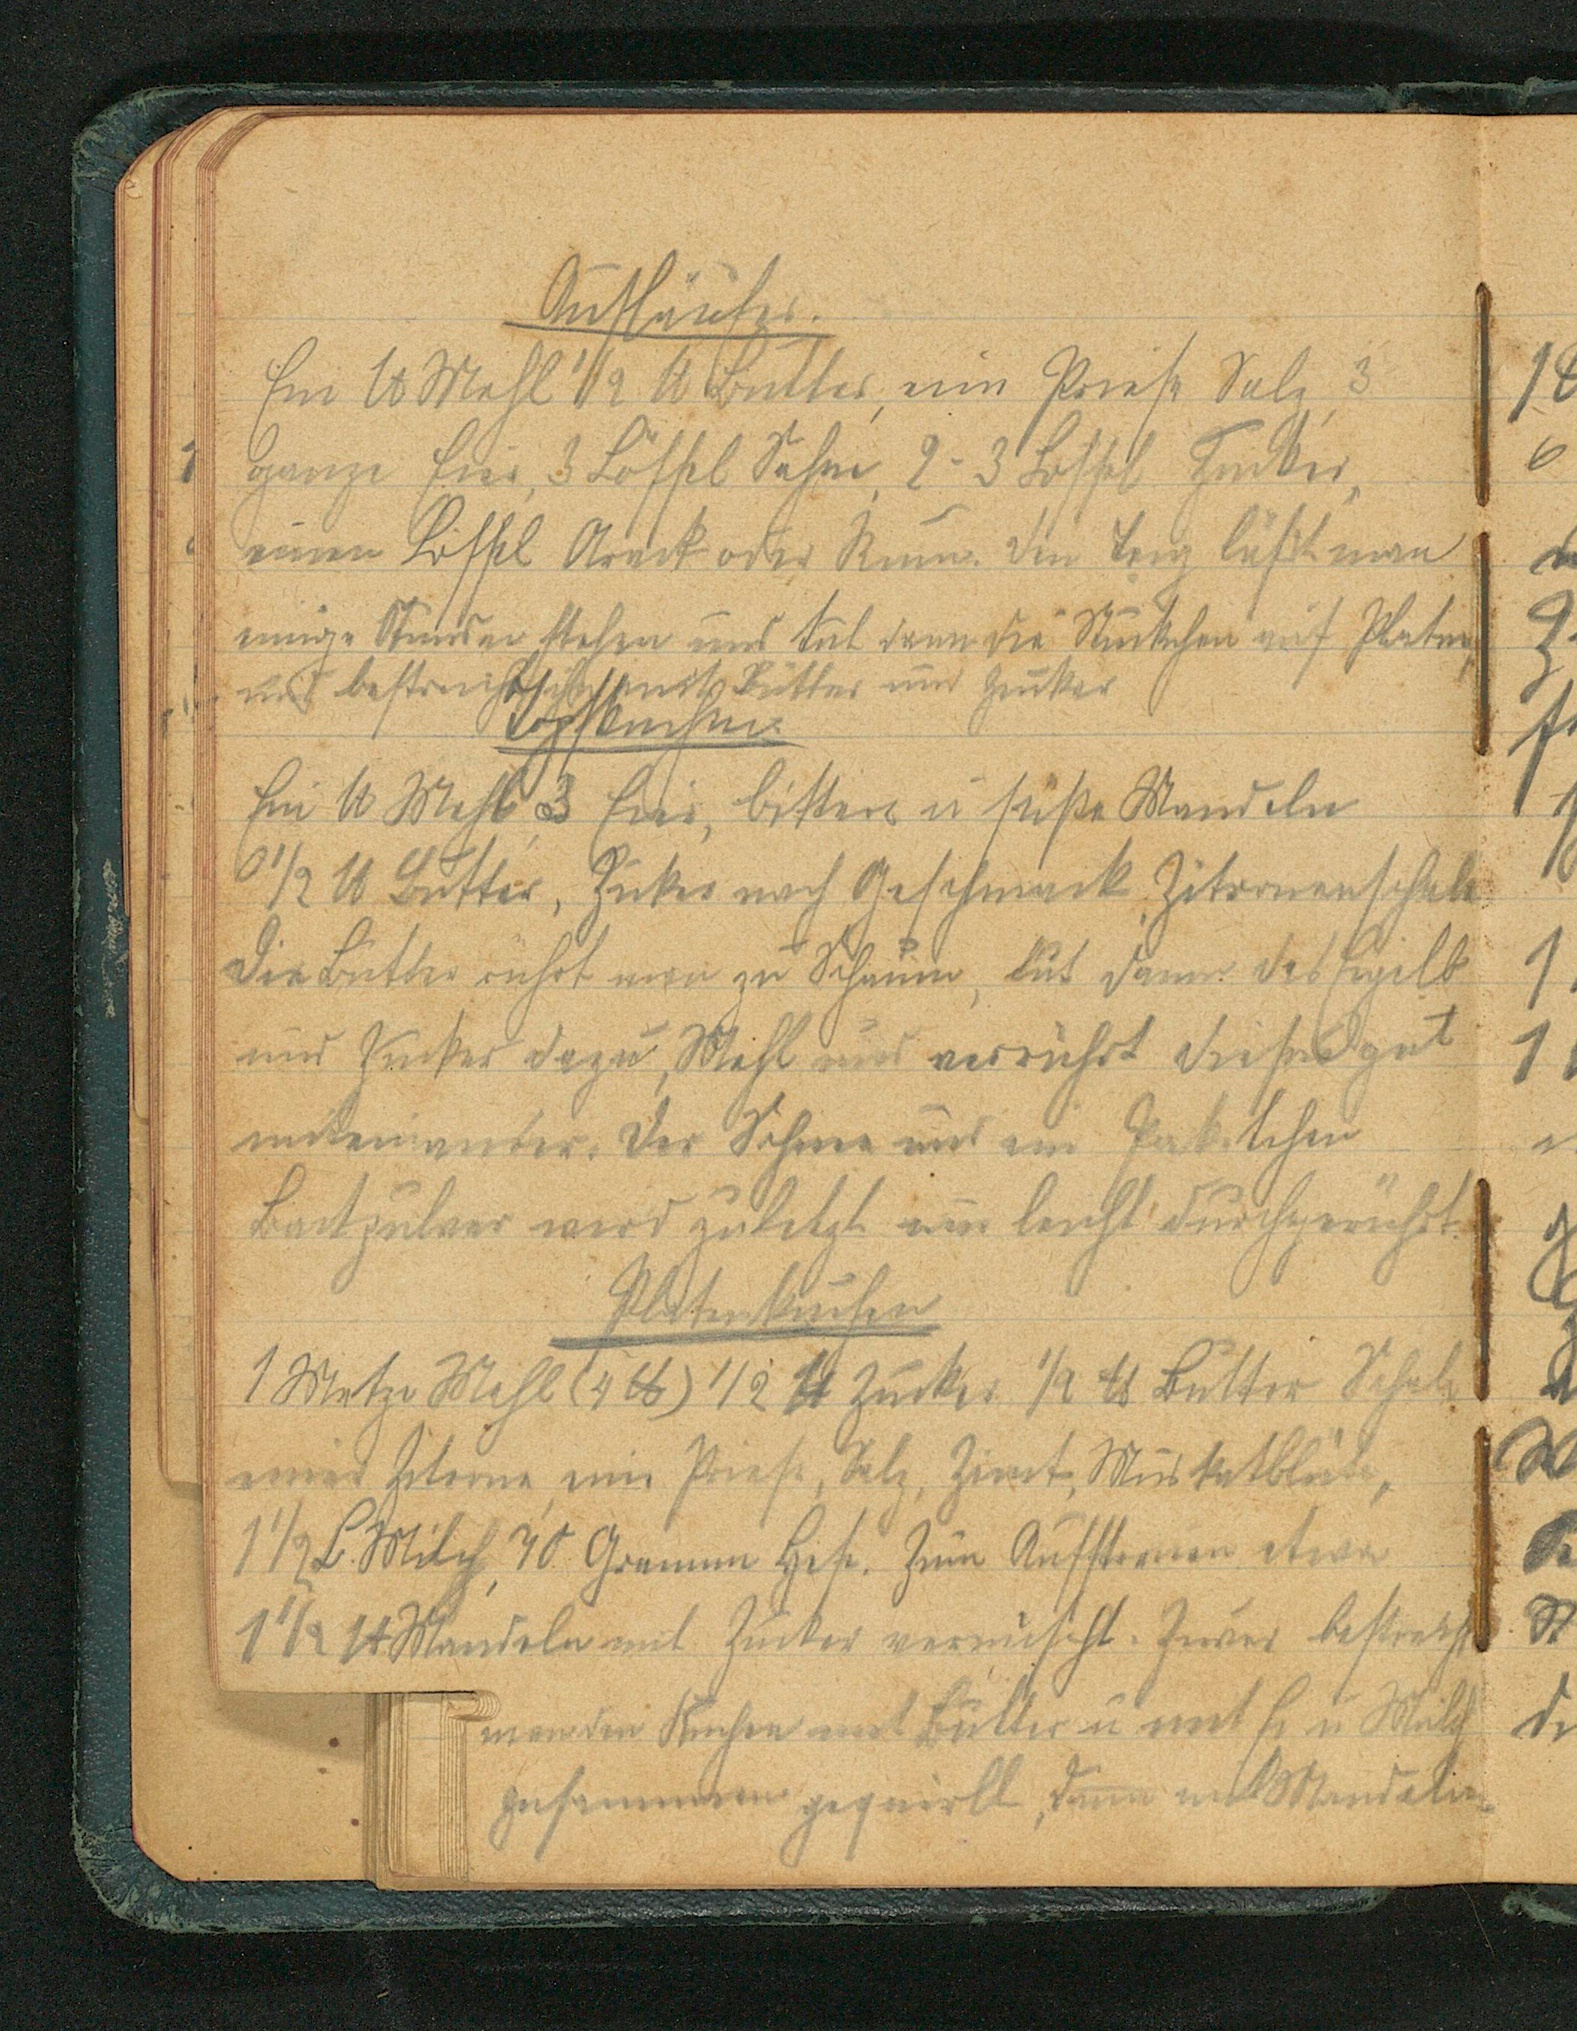 Ausläufer.
Ein ℔ Mehl 1/2 ℔ Butter, ein Priese Salz, 3
ganze Eier, 3 Löffel Sahne, 2-3 Löffel Zucker,
einen Löffel Arack oder Rum. Den Teig läßt man
einige Stunden stehen und tut dann die Stückchen auf Platen,
und bestreicht sie mit Butter und Zucker
Topfkuchen.
Ein ℔ Mehl, 3 Eier, bittere u süße Mandeln
1/2 ℔ Butter, Zucker nach Geschmack, Zitronenschale
Die Butter rührt man zu Schaum, tut dann das Eigelb
und Zucker dazu, Mehl und verrührt dieses gut
miteinander. Der Schnee und ein Paketchen
Backpulver wird zuletzt nur leicht durchgerührt.
Platenkuchen
1 Metze Mehl (4 ℔) 1/2 ℔ Zucker 1/2 ℔ Butter Schale
einer Zitrone, eine Priese, Salz, Zimt, Muskatblüte,
1 1/2 L. Milch, 70 Gramm Hefe. Zum Aufstreuen etwa
1 1/2 ℔ Mandeln mit Zucker vermischt. Zuvor bestreicht
man den Kuchen mit Butter u mit Ei u Milch
zusammen gequirlt, dann mit Mandeln